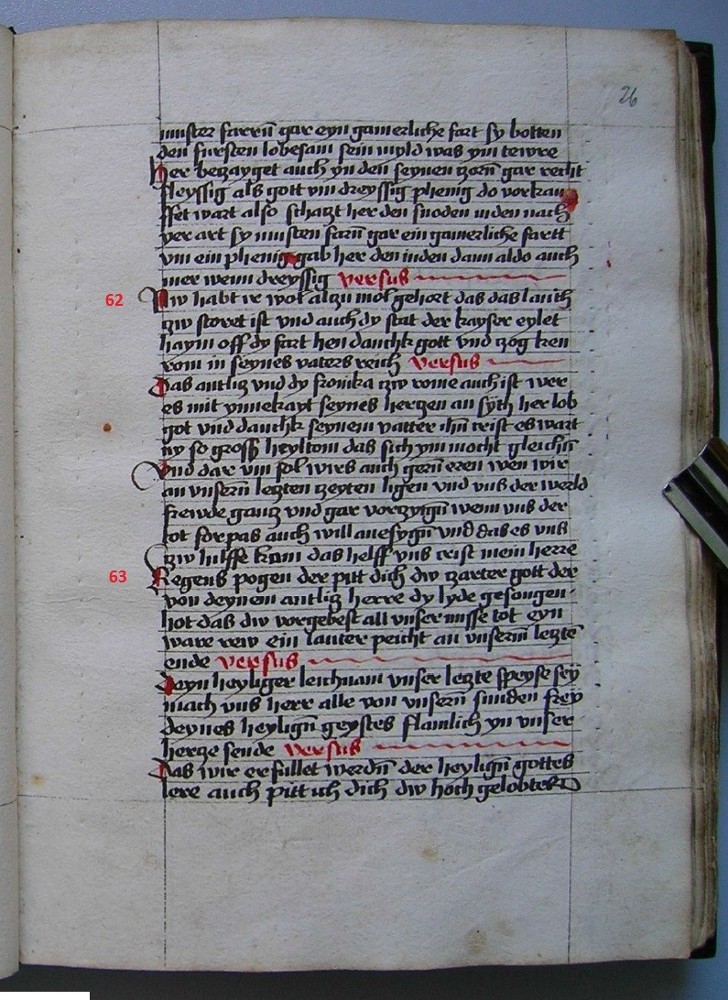 26
musten farrn̄ gar eyn gamerliche fart sy botten
den fursten lobesam sein myld was ym tewre
her bezayget auch yn den seynen zorn̄ gar recht
fleyssig als gott vm dreyssig phenig do vorkau
ffet wart also schatzt her den snoden inden nach
yer art sy musten farn̄ gar ein gamerliche fartt
vm ein phenig gab her den inden dann aldo auch
mer wenn dreyssig versus
62
Nw habt ir wol alzu mol gehort das das lanth
zw storet ist vnd auch dy stat der kayser eylet
haym off dy fart hen danckt gott vnd zog ken
rom in seynes vaters reich versus
Das antlitz vnd dy fronika zw rome auch ist wer
es mit ynnekayt seynes hertzen an syth her lob
got vnd danckt seynem vatter ihū crist es wart
ny so gross heyltom das sich ym mocht gleichn̄
Vnd dar vm sol wirs auch gern̄ eren wen wir
an vnsern̄ letzten zeyten ligen vnd vns der werld
frewde gantz vnd gar vorzygn̄ wenn vns der
tot forpas auch will anesygn̄ vnd das es vns
zw hilffe kom das helff vns crist mein herre
63
Regens pogen der pitt dich dw zarter gott der
von deynem antlitz herre dy lyde gesongen
hot das dw vorgebest all vnser misse tot eyn
ware rew ein lauter peicht an vnserm letztē
ende versus
Deyn heyliger leichnam vnser letzte speyse sey
mach vns herr alle von vnsern̄ sunden frey
deynes heylign̄ geystes flamlich yn vnser
hertze sende versus
Das wir erfullet werdn̄ der heylign̄ gottes
lere auch pitt ich dich dw hoch gelobter